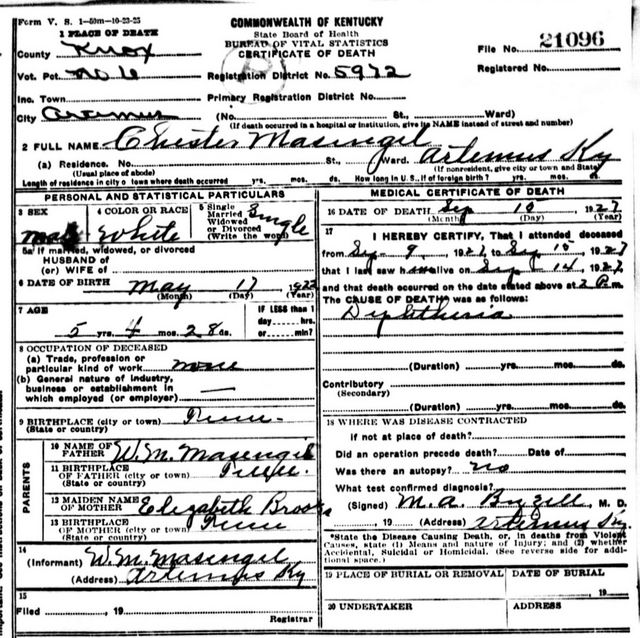 Form V. S. 1-50m-10-23-25
1 PLACE OF DEATH
County Knox
Vot. Pct. No 6
Inc. Town
City Artemus
COMMONWEALTH OF KENTUCKY
State Board of Health
BUREAU OF VITAL STATISTICS
CERTIFICATE OF DEATH
Registration District No. 5972
Primary Registration District No.
(No. St., Ward)
(If death occurred in a hospital or institution, give its NAME instead of street and number)
File No. 21096
Registered No.
2 FULL NAME Chester Masingil
(a) Residence. No. St., Ward. Artemus Ky
(Usual place of abode) (If nonresident, give city or town and State)
Length of residence in city or town where death occurred yrs. mos. ds. How long in U. S., if of foreign birth? yrs. mos. ds.
PERSONAL AND STATISTICAL PARTICULARS
3 SEX
male
4 COLOR OR RACE
White
5 Single
Married
Widowed
or Divorced
(Write the word)
Single
5a If married, widowed, or divorced
HUSBAND of
(or) WIFE of
6 DATE OF BIRTH May 17 1922
(Month) (Day) (Year)
7 AGE
5 yrs. 4 mos. 28 ds.
IF LESS than 1
day hrs.
or min?
8 OCCUPATION OF DECEASED
(a) Trade, profession or
particular kind of work none
(b) General nature of industry,
business or establishment in
which employed (or employer)
9 BIRTHPLACE (city or town) Tenn.
(State or country)
PARENTS
10 NAME OF
FATHER W. M. Masengil
11 BIRTHPLACE
OF FATHER (city or town) Tenn.
(State or country)
12 MAIDEN NAME
OF MOTHER Elizabeth Brooks
13 BIRTHPLACE
OF MOTHER (city or town) Tenn
(State or country)
14
(Informant) W. M. Masingil
(Address) Artemus Ky
15
Filed , 19
Registrar
MEDICAL CERTIFICATE OF DEATH
16 DATE OF DEATH Sep 15 1927
(Month) (Day) (Year)
17
I HEREBY CERTIFY, That I attended deceased
from Sep 9, 1927, to Sep 15, 1927
that I last saw h alive on Sep 14, 1927
and that death occurred on the date stated above at 2 P.m.
The CAUSE OF DEATH was as follows:
Diphtheria
(Duration) yrs. mos. ds.
Contributory
(Secondary)
(Duration) yrs. mos. ds.
18 WHERE WAS DISEASE CONTRACTED
if not at place of death?
Did an operation precede death? Date of
Was there an autopsy? no
What test confirmed diagnosis?
(Signed) M. A. , M. D.
, 19 (Address) Artemus Ky.
*State the Disease Causing Death, or, in deaths from Violent
Causes, state (1) Means and nature of Injury; and (2) whether
Accidental, Suicidal or Homicidal. (See reverse side for addi-
tional space.)
19 PLACE OF BURIAL OR REMOVAL
DATE OF BURIAL
, 19
20 UNDERTAKER
ADDRESS